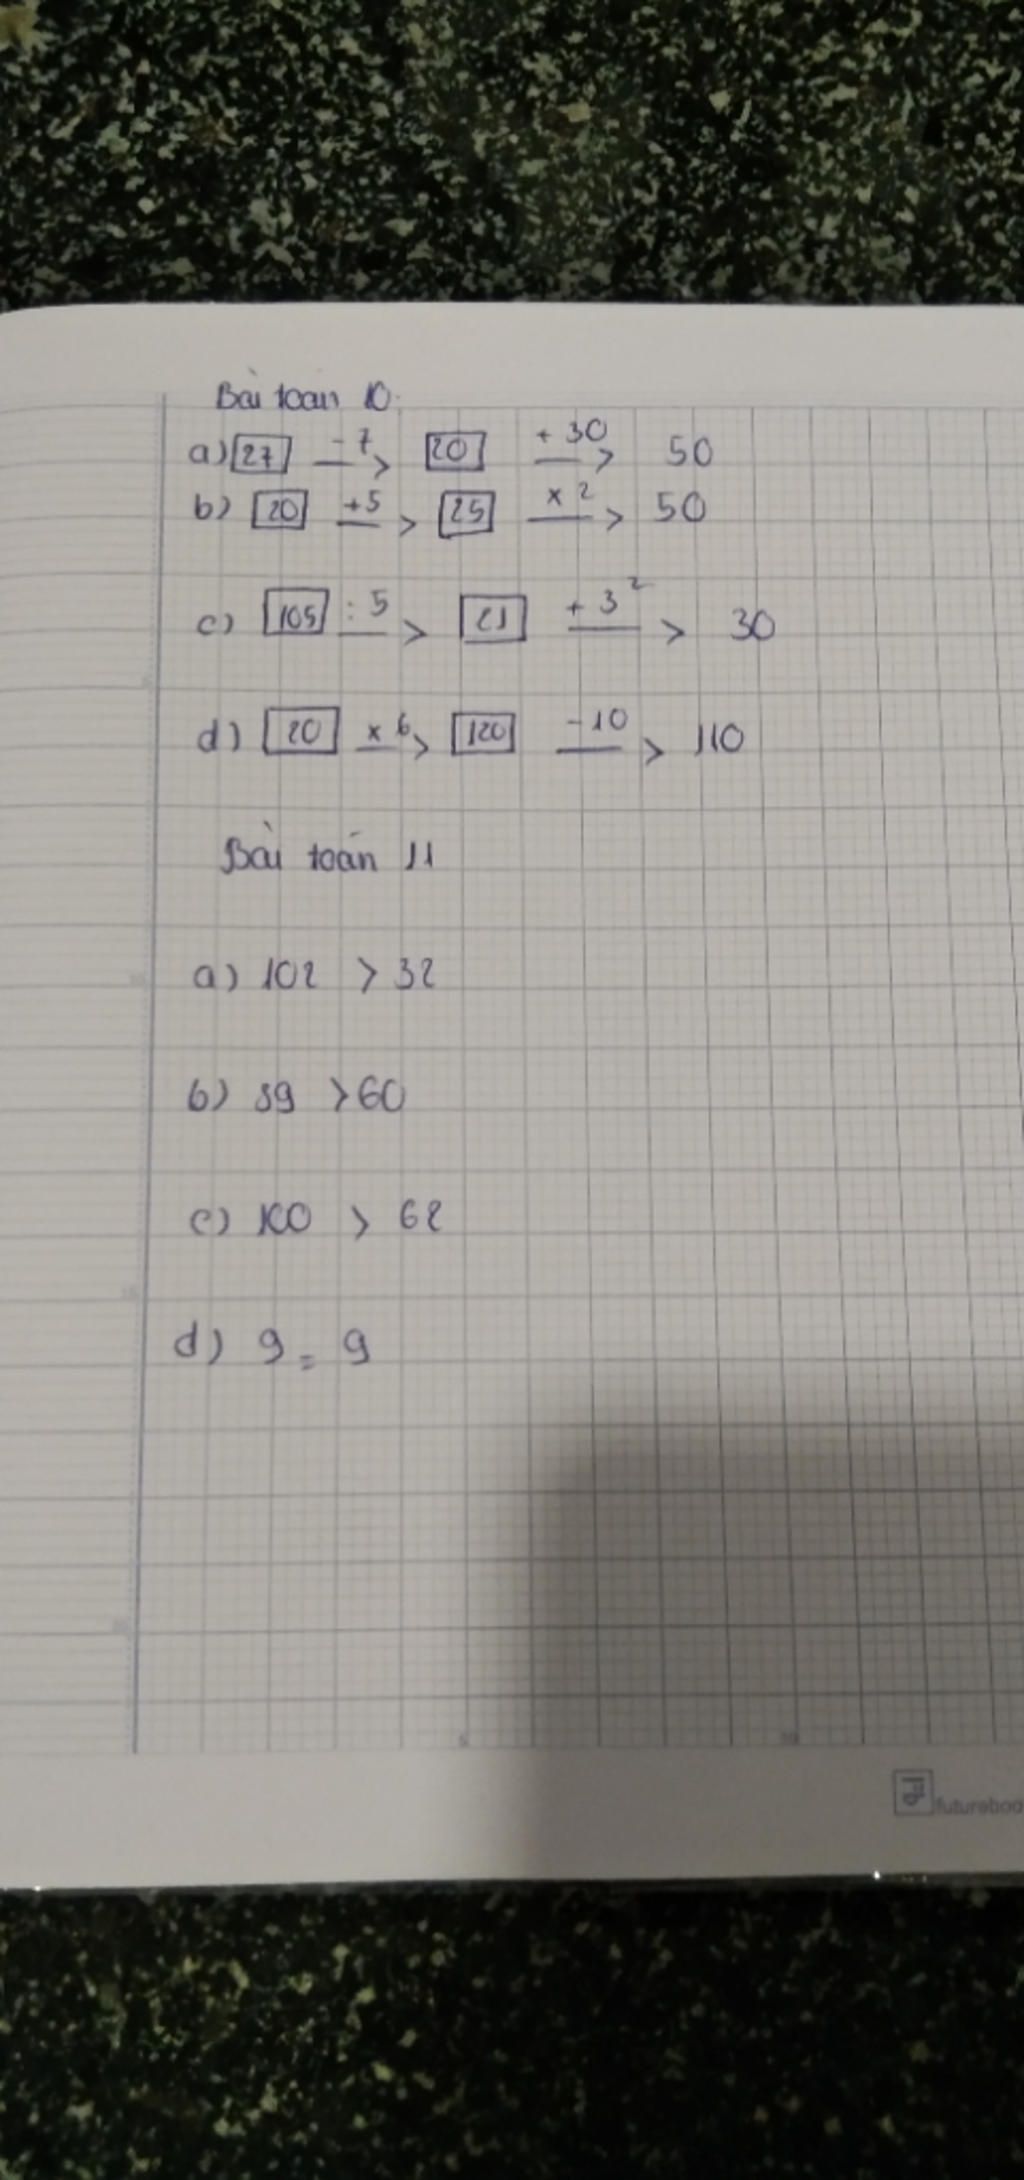 Bài toán 10.
a) 27 -7 > 20 +30 > 50
b) 20 +5 > 25 x2 > 50
c) 105 : 5 > 21 + 3² > 30
d) 20 x 6 > 120 -10 > 110
Bài toán 11
a) 102 > 32
b) 89 > 60
c) 100 > 62
d) 9 = 9
futureboo